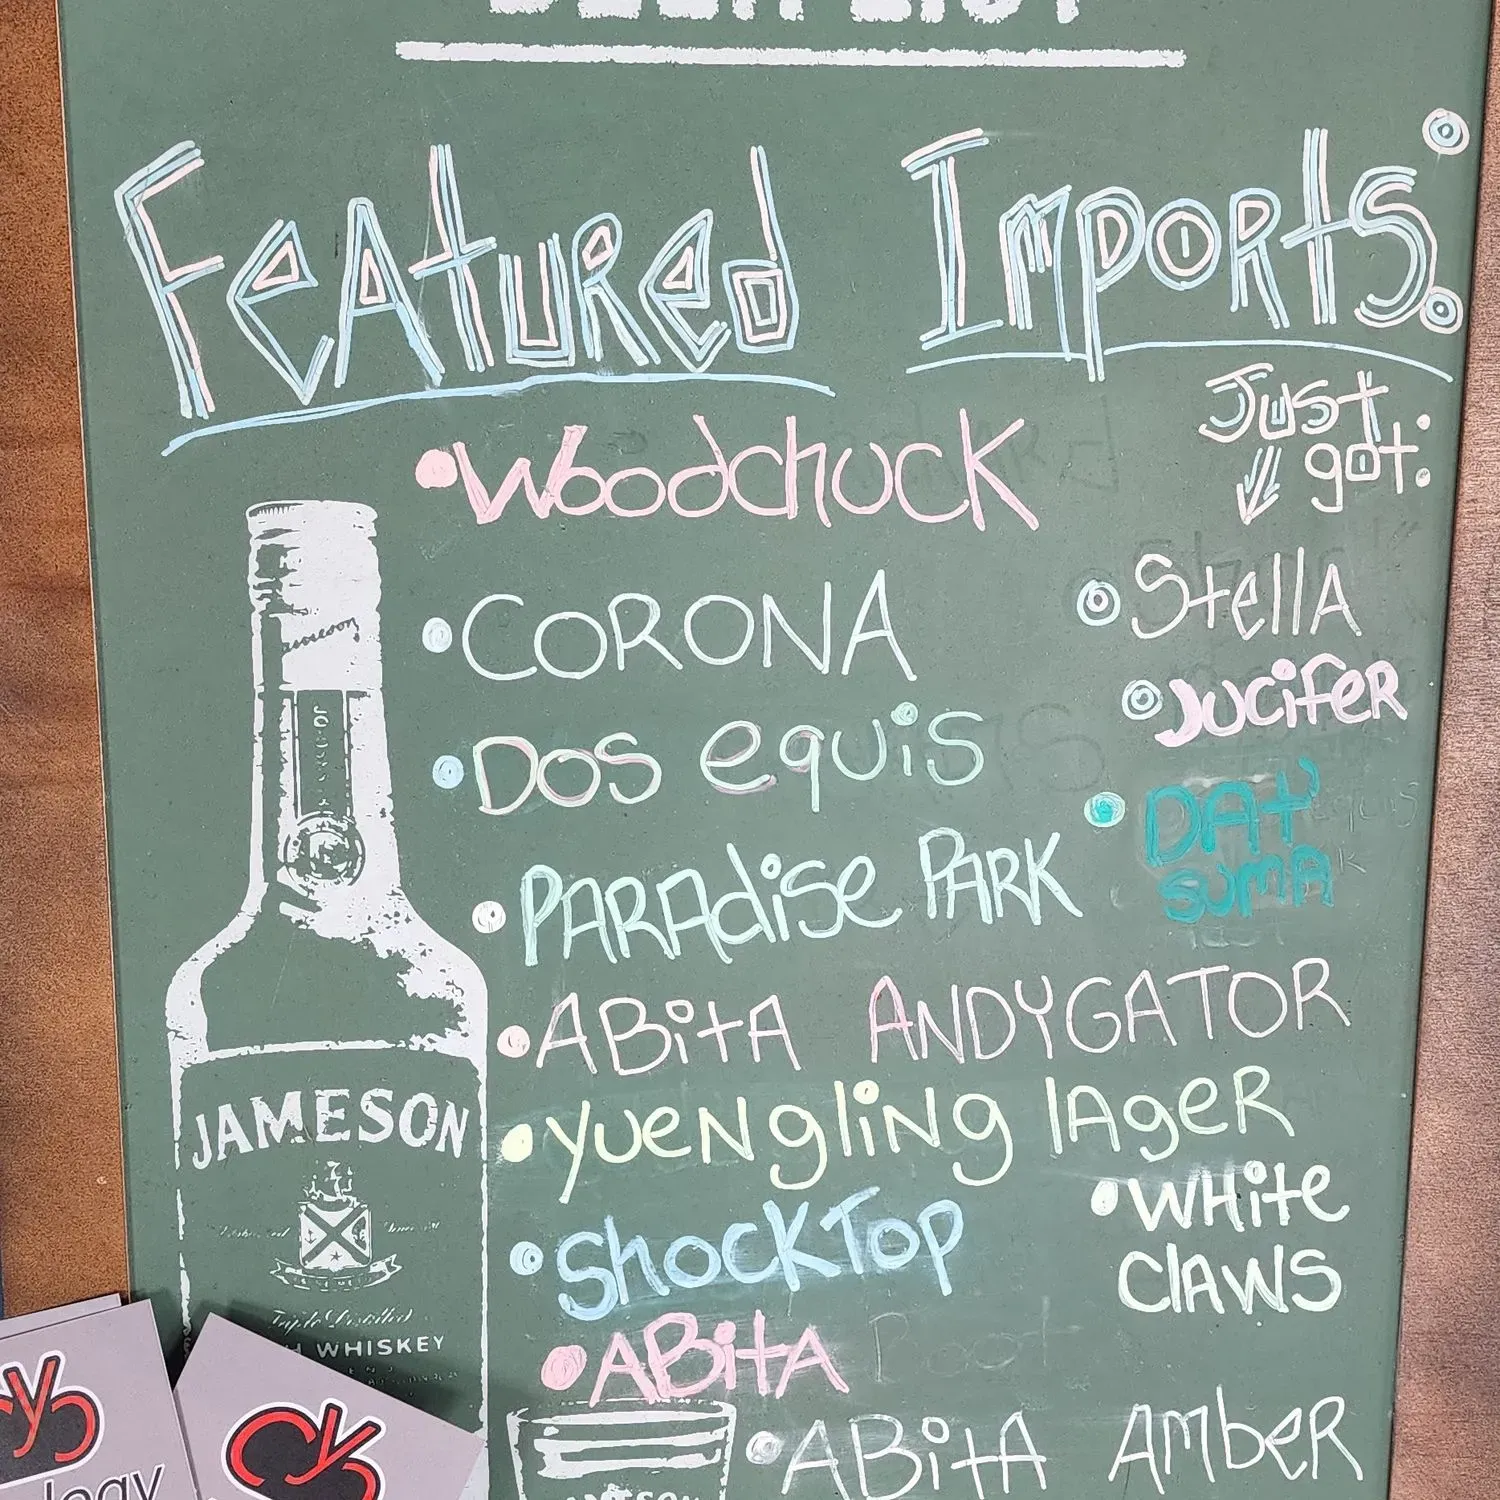 BEER LIST
FeAtured Imports:
Just
got:
WoodchucK
CORONA
Stella
JuCifeR
Dos equis
DAt
SumA
PARAdise PARK
ABitA ANDYGATOR
yueNgliNg lAgeR
WHite
ClAWS
ShocKTop
ABitA
ABitA AmbeR
Jameson
JAMESON
Triple Distilled
H WHISKEY
logy